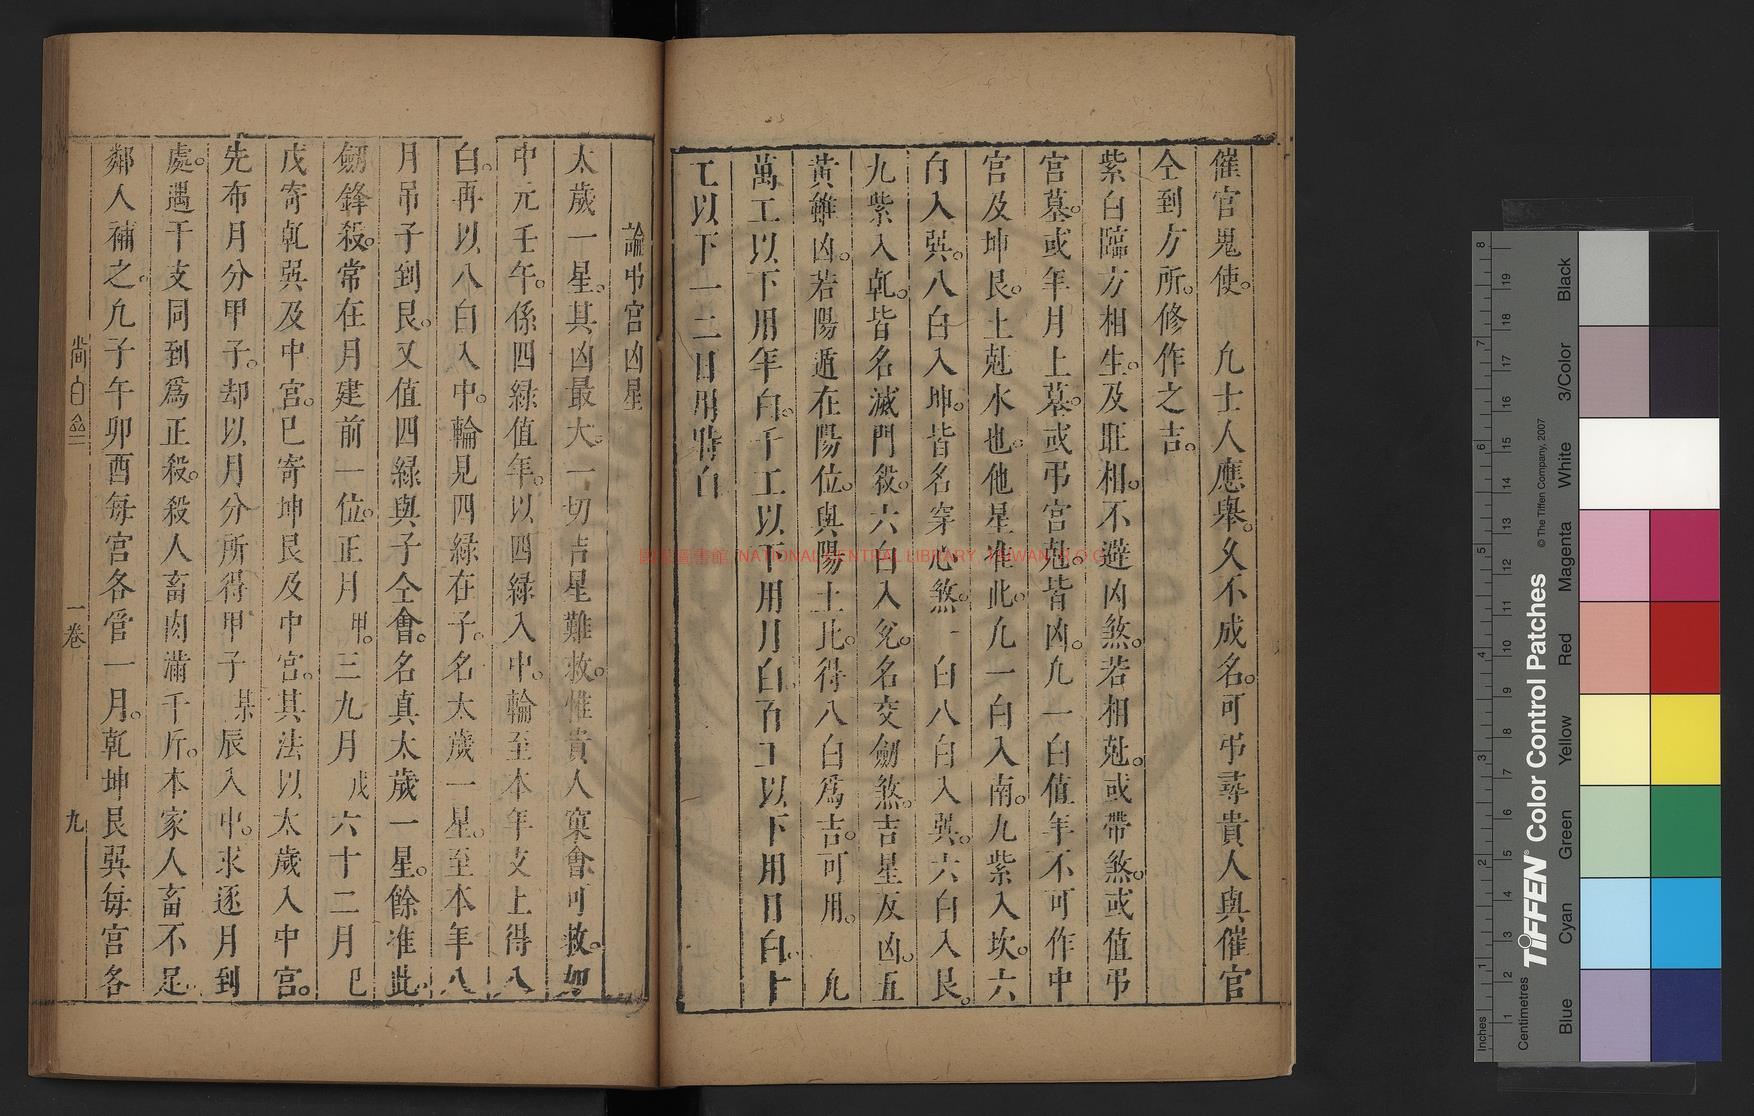 催官鬼使。凢士人應舉。乆不成名。可弔尋貴人與催官
仝到方所。修作之吉。
紫白臨方相生。及旺相。不避凶煞。若相尅。或帶煞。或值弔
宮墓。或年月上墓。或弔宮尅。皆凶。凢一白值年不可作中
宮及坤艮。土尅水也。他星准此。凢一白入南。九紫入坎。六
白入巽。八白入坤。皆名穿心煞。一白八白入巽。六白入艮。
九紫入乹。皆名滅門殺。六白入兌。名交劒煞。吉星反凶。五
黃雖凶。若陽遁在陽位。與陽土北。得八白爲吉。可用。凢
萬工以下用年白。千工以下用月白。百工以下用日白。十
工以下一二日用時白
論弔宮凶星
太歲一星。其凶最大。一切吉星難救。惟貴人窠會可救。如
中元壬午。係四緑值年。以四緑入中。輪至本年支上得八
白。再以八白入中。輪見四緑在子。名太歲一星。至本年八
月弔子到艮。又值四緑與子仝會。名真太歲一星。餘准此。
劒鋒殺。常在月建前一位。正月甲。三九月戊六十二月巳
戊寄乹巽及中宮。巳寄坤艮及中宮。其法以太歲入中宮。
先布月分甲子。却以月分所得甲子某辰入中。求逐月到
處。遇干支同到爲正殺。殺人畜肉滿千斤。本家人畜不足
鄰人補之。凢子午卯酉每宮各管一月。乹坤艮巽每宮各
尚白齋
一卷
九
國家圖書館 NATIONAL CENTRAL LIBRARY, TAIWAN, R.O.C
Inches
Centimetres
TIFFEN® Color Control Patches
© The Tiffen Company, 2007
Blue
Cyan
Green
Yellow
Red
Magenta
White
3/Color
Black